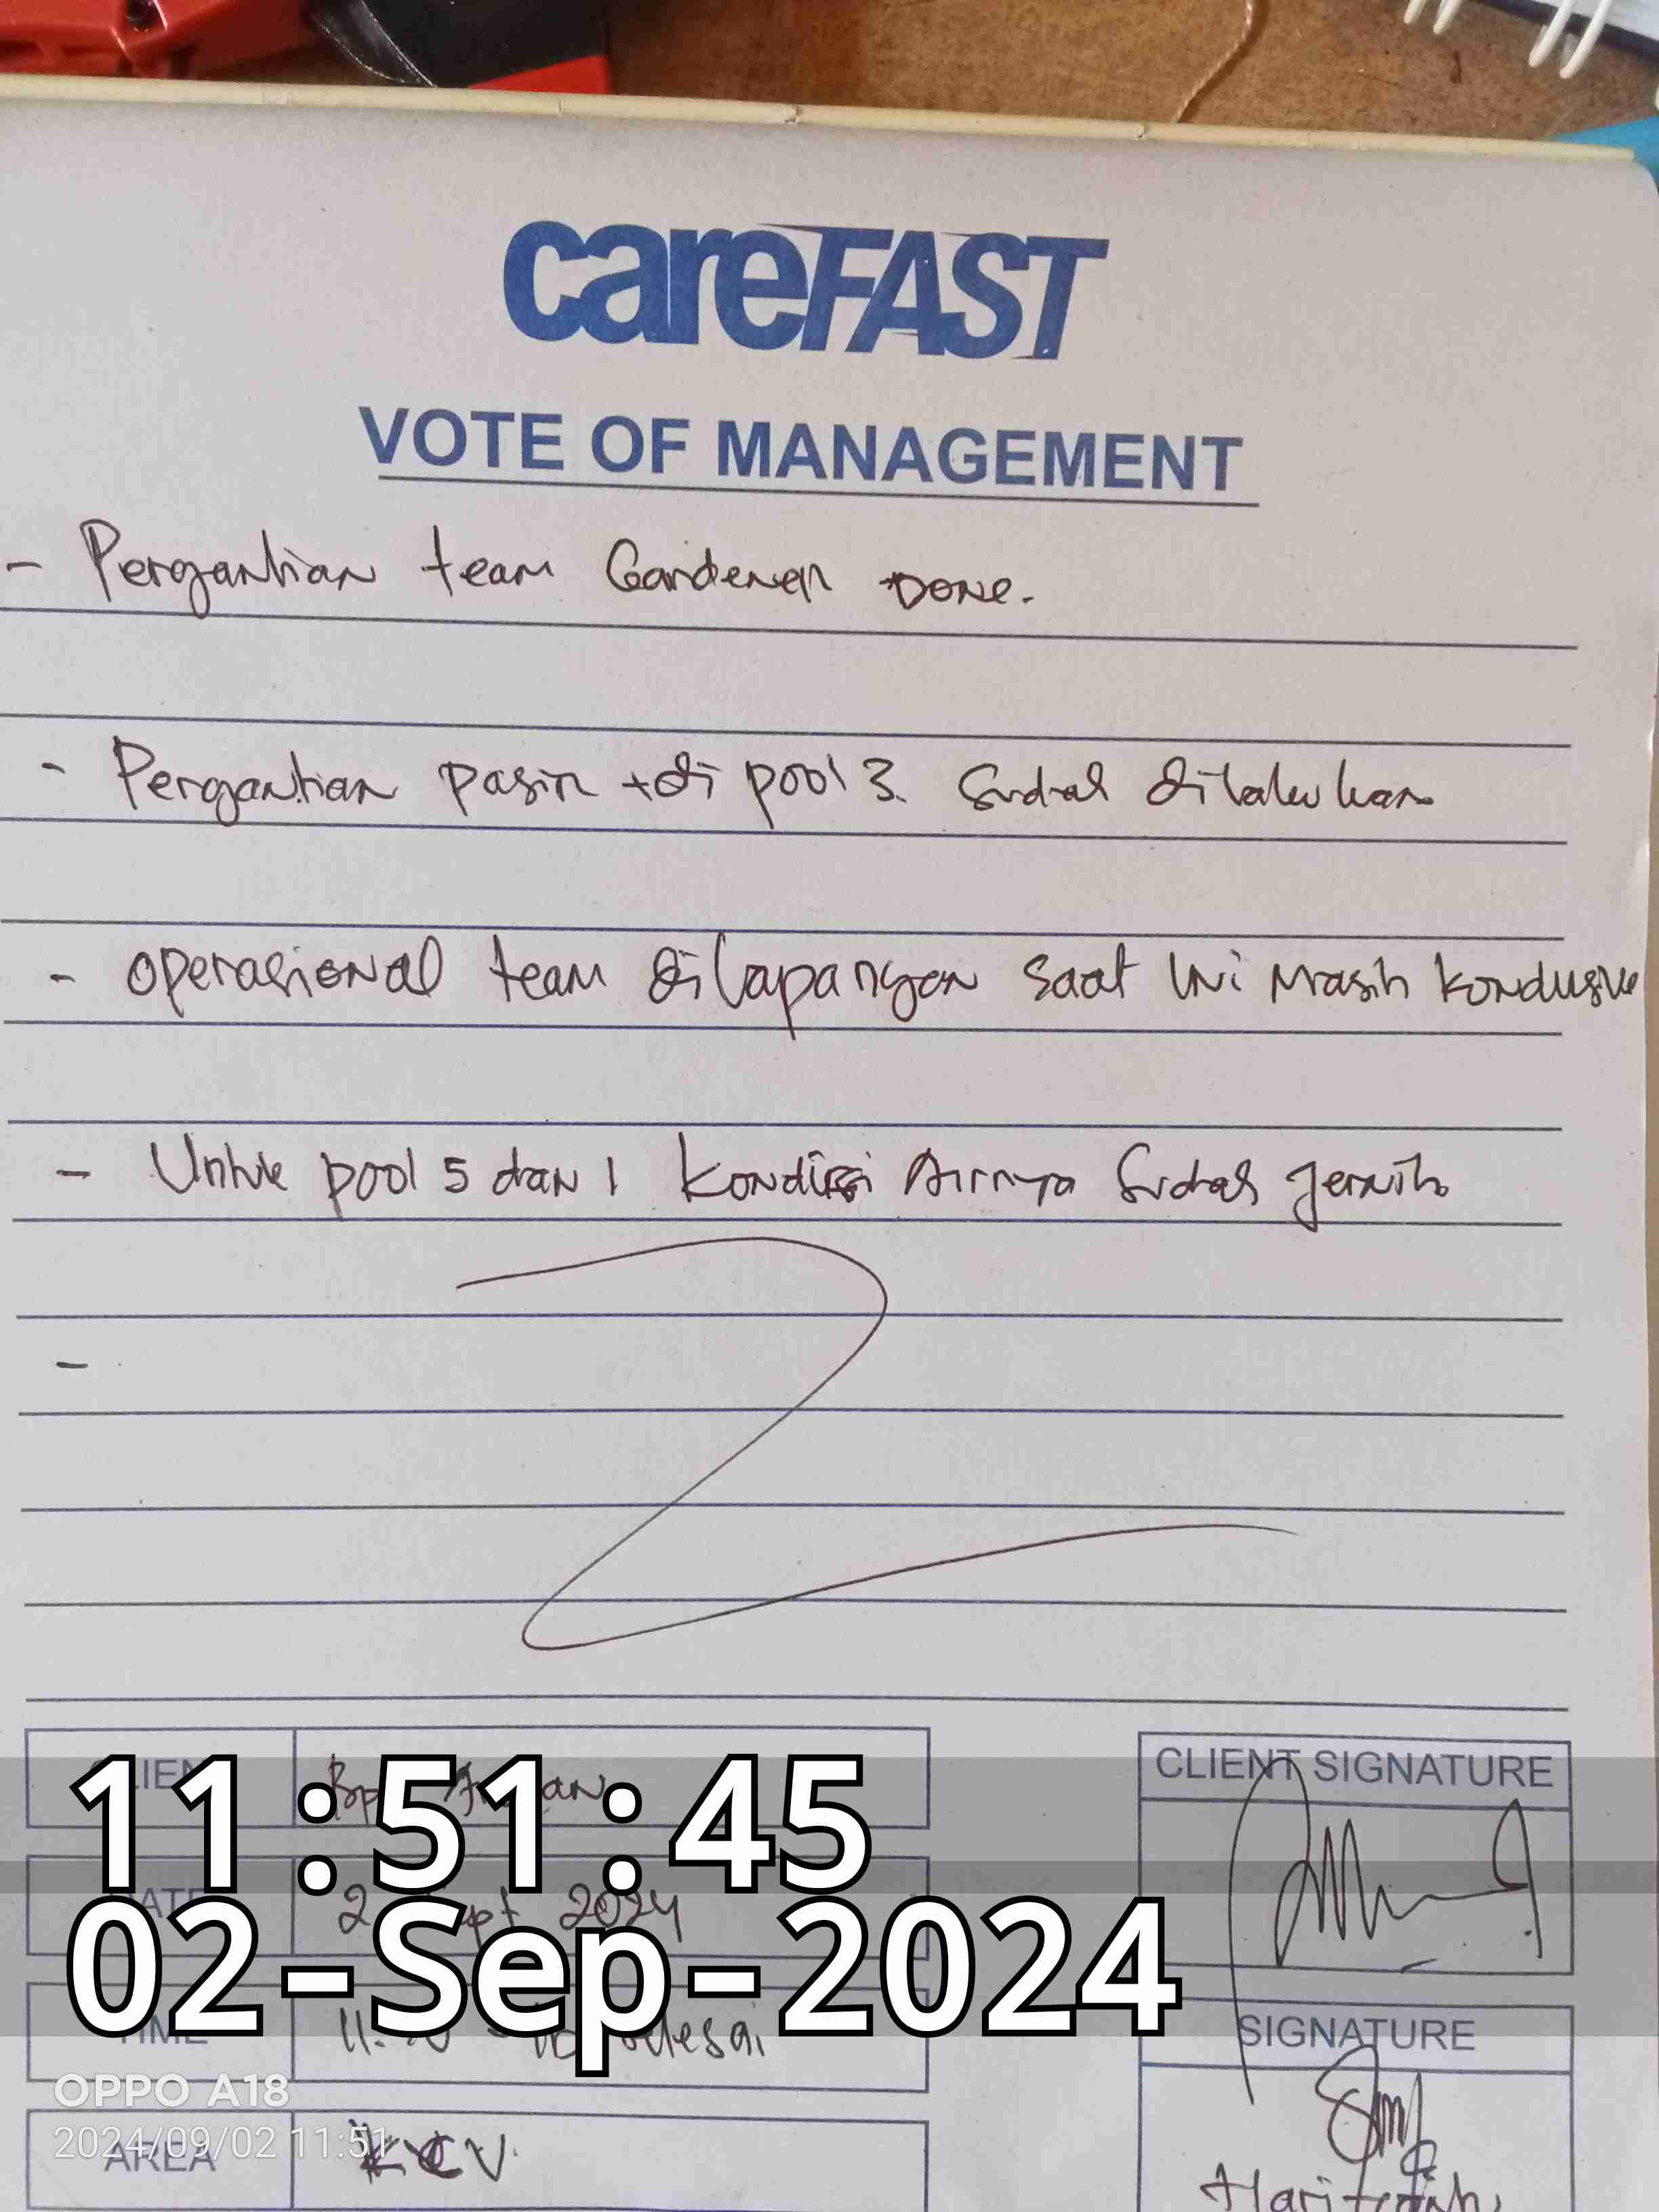 careFAST
VOTE OF MANAGEMENT
- Pergantian team Gardener DONE.
- Pergantian pasir di pool 3. Sudah dilakukan
- Operasional team dilapangan saat ini masih kondusive
- Untuk pool 5 dan 1 kondisi Airnya Sudah Jernih
-
CLIENT
DATE 2 Sept 2024
TIME
AREA KCV
CLIENT SIGNATURE
SIGNATURE
11:51:45
02-Sep-2024
OPPO A18
2024/09/02 11:51